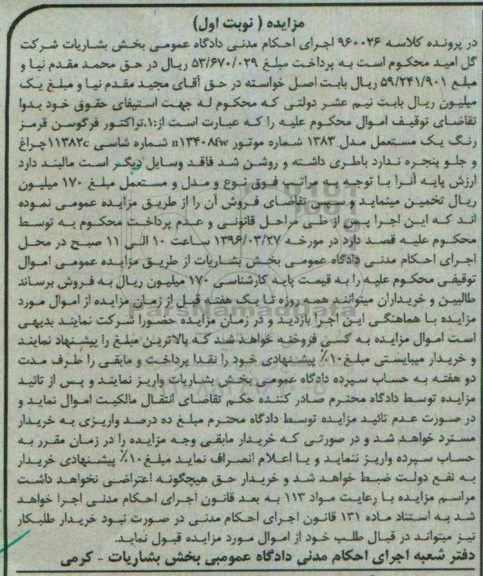 مزایده ( نوبت اول)
در پرونده کلاسه ۹۶۰۰۲۶ اجرای احکام مدنی دادگاه عمومی بخش بشاریات شرکت
گل امید محکوم است به پرداخت مبلغ ۵۳/۶۷۰/۰۲۹ ریال در حق محمد مقدم نیا و
مبلغ ۵۹/۲۴۱/۹۰۱ ریال بابت اصل خواسته در حق آقای مجید مقدم نیا و مبلغ یک
میلیون ریال بابت نیم عشر دولتی که محکوم له جهت استیفای حقوق خود بدوا
تقاضای توقیف اموال محکوم علیه را که عبارت است از:۱.تراکتور فرگوسن قرمز
رنگ یک مستعمل مدل ۱۳۸۳ شماره موتور n۱۳۴۰۸fw شماره شاسی ۱۱۳۸۲c چراغ
و جلو پنجره ندارد باطری داشته و روشن شد فاقد وسایل دیگر است مالیند دارد
ارزش پایه آنرا با توجه به مراتب فوق نوع و مدل و مستعمل مبلغ ۱۷۰ میلیون
ریال تخمین مینماید و سپس تقاضای فروش آن را از طریق مزایده عمومی نموده
اند که این اجرا پس از طی مراحل قانونی و عدم پرداخت محکوم به توسط
محکوم علیه قصد دارد در مورخه ۱۳۹۶/۰۳/۲۷ ساعت ۱۰ الی ۱۱ صبح در محل
اجرای احکام مدنی دادگاه عمومی بخش بشاریات از طریق مزایده عمومی اموال
توقیفی محکوم علیه را به قیمت پایه کارشناسی ۱۷۰ میلیون ریال به فروش برساند
طالبین و خریداران میتوانند همه روزه تا یک هفته قبل از زمان مزایده از اموال مورد
مزایده با هماهنگی این اجرا بازدید و در زمان مزایده حضورا شرکت نمایند بدیهی
است اموال مزایده به کسی فروخته خواهد شد که بالاترین مبلغ را پیشنهاد نمایند
و خریدار میبایستی مبلغ۱۰٪ پیشنهادی خود را نقدا پرداخت و مابقی را ظرف مدت
دو هفته به حساب سپرده دادگاه عمومی بخش بشاریات واریز نمایند و پس از تائید
مزایده توسط دادگاه محترم صادر کننده حکم تقاضای انتقال مالکیت اموال نماید و
در صورت عدم تائید مزایده توسط دادگاه محترم مبلغ ده درصد واریزی به خریدار
مسترد خواهد شد و در صورتی که خریدار مابقی وجه مزایده را در زمان مقرر به
حساب سپرده واریز ننماید و یا اعلام انصراف نماید مبلغ۱۰٪ پیشنهادی خریدار
به نفع دولت ضبط خواهد شد و خریدار حق هیچگونه اعتراضی نخواهد داشت
مراسم مزایده با رعایت مواد ۱۱۳ به بعد قانون اجرای احکام مدنی اجرا خواهد
شد به استناد ماده ۱۳۱ قانون اجرای احکام مدنی در صورت نبود خریدار طلبکار
نیز میتواند در قبال طلب خود از اموال مورد مزایده قبول نماید.
دفتر شعبه اجرای احکام مدنی دادگاه عمومی بخش بشاریات - کرمی